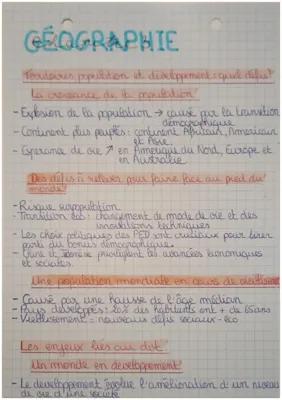 GÉOGRAPHIE
Territoires, population et développement : quels défis?
La croissance de la population
- Explosion de la population → causé par la transition
démographique
- Continent plus peuplés : continent Africain, Américain
et Asie.
- Espérance de vie ↗ en Amérique du Nord, Europe et
en Australie
Des défis à relever pour faire face au
monde
- Risque surpopulation
- Transition : changement de mode de vie et des
innovations techniques
- Les choix politiques des PED sont cruciaux pour tirer
partie du bonus démographique.
- Chine et privilégient les avancées économiques
et sociales.
Une population mondiale en cours de
- Causé par une hausse de l'âge médian
- Pays développés : 20% des habitants ont + de 65ans
- Vieillissement = nouveaux défis sociaux - éco
Les enjeux liés au
Un monde en développement
- Le développement l'amélioration d'un niveau
de vie d'une société